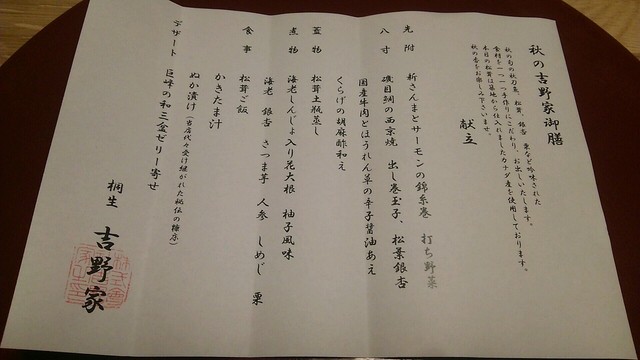 秋の吉野家御膳
秋の旬の秋刀魚、松茸、銀杏、栗など吟味された
食材を一つ一つ手作りにこだわり、お出しいたします。
本日の松茸は築地から仕入れましたカナダ産を使用しております。
秋の香をお楽しみ下さいませ。
献立
先附 新さんまとサーモンの錦糸巻 打ち野菜
八寸 磯目鯛の西京焼 出し巻玉子、松葉銀杏
国産牛肉とほうれん草の辛子醤油あえ
くらげの胡麻酢和え
蓋物 松茸土瓶蒸し
煮物 海老しんじょ入り花大根 柚子風味
海老 銀杏 さつま芋 人参 しめじ 栗
食事 松茸ご飯
かきたま汁
ぬか漬け(当店代々受け継がれた秘伝の糠床)
デザート 巨峰の和三盆ゼリー寄せ
桐生 吉野家